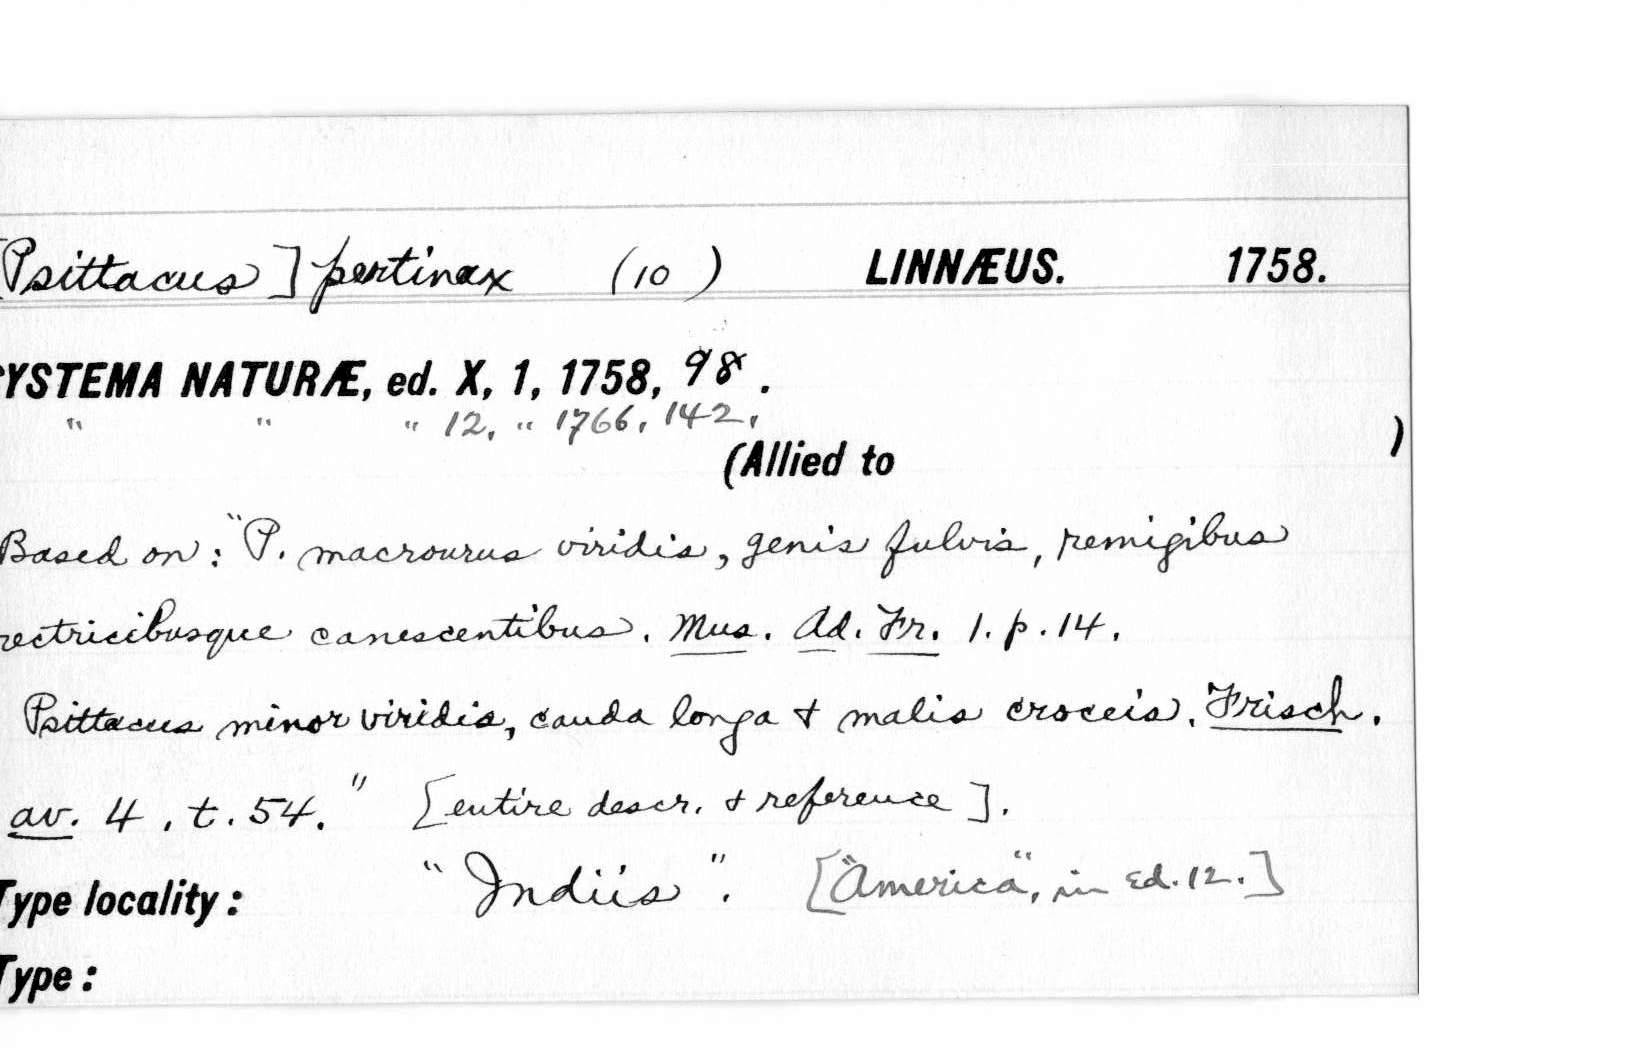 [Psittacus] pertinax (10) LINNÆUS. 1758.
SYSTEMA NATURÆ, ed. X, 1, 1758, 98.
" " " 12, " 1766, 142.
(Allied to )
Based on: "P. macrourus viridis, genis fulvis, remigibus
rectricibusque canescentibus. Mus. Ad. Fr. 1. p. 14.
Psittacus minor viridis, cauda longa & malis croceis. Frisch.
av. 4, t. 54." [entire descr. & reference].
Type locality: "Indiis". ["America", in Ed. 12.]
Type: